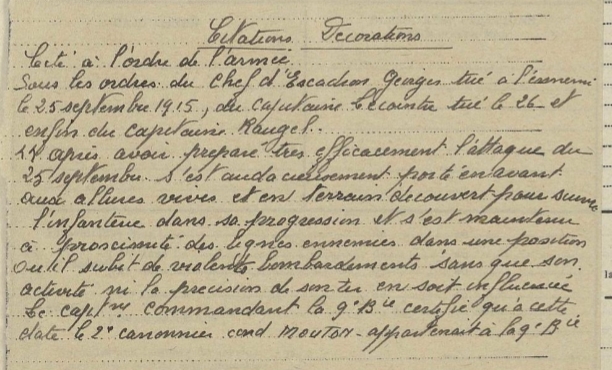 Citations Décorations
Cité à l'ordre de l'armée
Sous les ordres du Chef d'Escadron Georges tué à l'ennemi
le 25 septembre 1915, du capitaine Lecointre tué le 26 et
enfin du capitaine Raugel.
après avoir préparé très efficacement l'attaque du
25 septembre s'est audacieusement porté en avant
aux allures vives et en terrain découvert pour suivre
l'infanterie dans sa progression et s'est maintenu
à proximité des lignes ennemies dans une position
où il subit de violents bombardements sans que son
activité ni la précision de son tir en soit influencée
Le capitne commandant la 9e Bie certifie qu'à cette
date le 2e canonnier cond MOUTON appartenait à la 9e Bie